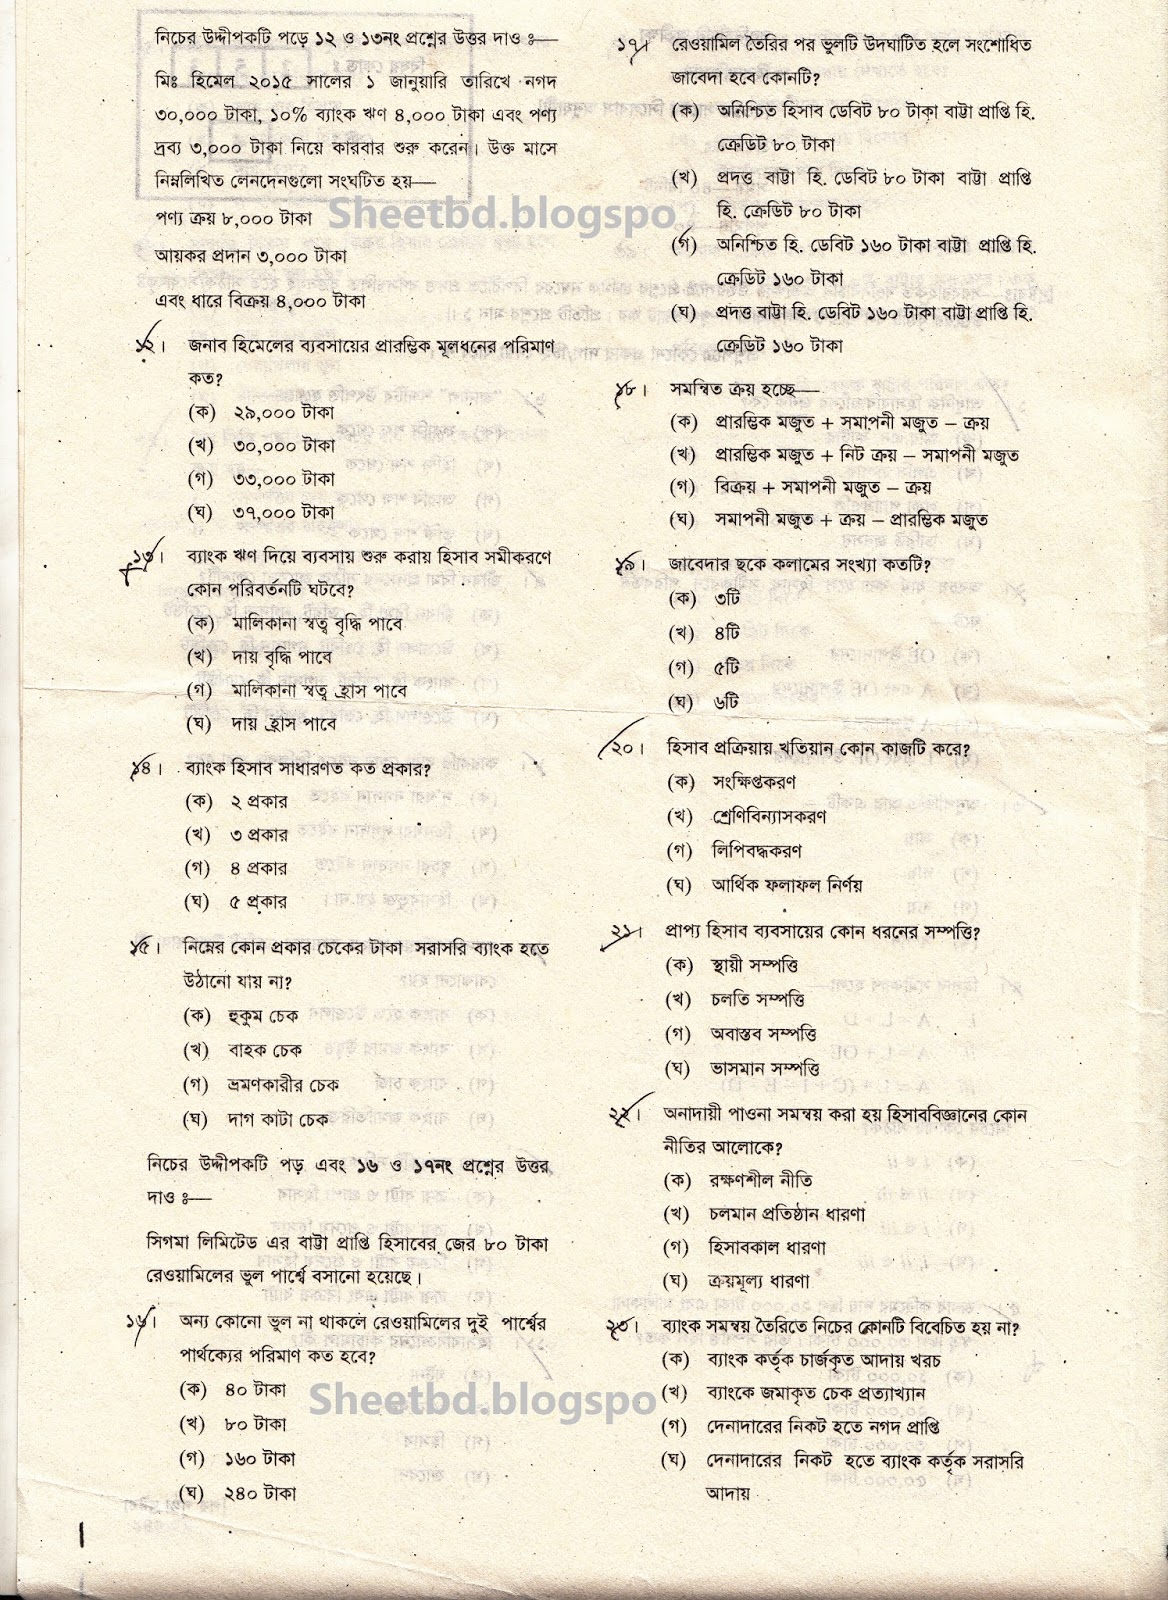 নিচের উদ্দীপকটি পড়ে ১২ ও ১৩নং প্রশ্নের উত্তর দাও ঃ—
মিঃ হিমেল ২০১৫ সালের ১ জানুয়ারি তারিখে নগদ
৩০,০০০ টাকা, ১০% ব্যাংক ঋণ ৪,০০০ টাকা এবং পণ্য
দ্রব্য ৩,০০০ টাকা নিয়ে কারবার শুরু করেন। উক্ত মাসে
নিম্নলিখিত লেনদেনগুলো সংঘটিত হয়—
পণ্য ক্রয় ৮,০০০ টাকা
Sheetbd.blogspo
আয়কর প্রদান ৩,০০০ টাকা
এবং ধারে বিক্রয় ৪,০০০ টাকা
১২। জনাব হিমেলের ব্যবসায়ের প্রারম্ভিক মূলধনের পরিমাণ
কত?
(ক) ২৯,০০০ টাকা
(খ) ৩০,০০০ টাকা
(গ) ৩৩,০০০ টাকা
(ঘ) ৩৭,০০০ টাকা
১৩। ব্যাংক ঋণ দিয়ে ব্যবসায় শুরু করায় হিসাব সমীকরণে
কোন পরিবর্তনটি ঘটবে?
(ক) মালিকানা স্বত্ব বৃদ্ধি পাবে
(খ) দায় বৃদ্ধি পাবে
(গ) মালিকানা স্বত্ব হ্রাস পাবে
(ঘ) দায় হ্রাস পাবে
১৪। ব্যাংক হিসাব সাধারণত কত প্রকার?
(ক) ২ প্রকার
(খ) ৩ প্রকার
(গ) ৪ প্রকার
(ঘ) ৫ প্রকার
১৫। নিম্নের কোন প্রকার চেকের টাকা সরাসরি ব্যাংক হতে
উঠানো যায় না?
(ক) হুকুম চেক
(খ) বাহক চেক
(গ) ভ্রমণকারীর চেক
(ঘ) দাগ কাটা চেক
নিচের উদ্দীপকটি পড় এবং ১৬ ও ১৭নং প্রশ্নের উত্তর
দাও ঃ—
সিগমা লিমিটেড এর বাট্টা প্রাপ্তি হিসাবের জের ৮০ টাকা
রেওয়ামিলের ভুল পার্শ্বে বসানো হয়েছে।
১৬। অন্য কোনো ভুল না থাকলে রেওয়ামিলের দুই পার্শ্বের
পার্থক্যের পরিমাণ কত হবে?
(ক) ৪০ টাকা
Sheetbd.blogspo
(খ) ৮০ টাকা
(গ) ১৬০ টাকা
(ঘ) ২৪০ টাকা
১৭। রেওয়ামিল তৈরির পর ভুলটি উদঘাটিত হলে সংশোধিত
জাবেদা হবে কোনটি?
(ক) অনিশ্চিত হিসাব ডেবিট ৮০ টাকা বাট্টা প্রাপ্তি হি.
ক্রেডিট ৮০ টাকা
(খ) প্রদত্ত বাট্টা হি. ডেবিট ৮০ টাকা বাট্টা প্রাপ্তি
হি. ক্রেডিট ৮০ টাকা
(গ) অনিশ্চিত হি. ডেবিট ১৬০ টাকা বাট্টা প্রাপ্তি হি.
ক্রেডিট ১৬০ টাকা
(ঘ) প্রদত্ত বাট্টা হি. ডেবিট ১৬০ টাকা বাট্টা প্রাপ্তি হি.
ক্রেডিট ১৬০ টাকা
১৮। সমন্বিত ক্রয় হচ্ছে—
(ক) প্রারম্ভিক মজুত + সমাপনী মজুত – ক্রয়
(খ) প্রারম্ভিক মজুত + নিট ক্রয় – সমাপনী মজুত
(গ) বিক্রয় + সমাপনী মজুত – ক্রয়
(ঘ) সমাপনী মজুত + ক্রয় – প্রারম্ভিক মজুত
১৯। জাবেদার ছকে কলামের সংখ্যা কতটি?
(ক) ৩টি
(খ) ৪টি
(গ) ৫টি
(ঘ) ৬টি
২০। হিসাব প্রক্রিয়ায় খতিয়ান কোন কাজটি করে?
(ক) সংক্ষিপ্তকরণ
(খ) শ্রেণিবিন্যাসকরণ
(গ) লিপিবদ্ধকরণ
(ঘ) আর্থিক ফলাফল নির্ণয়
২১। প্রাপ্য হিসাব ব্যবসায়ের কোন ধরনের সম্পত্তি?
(ক) স্থায়ী সম্পত্তি
(খ) চলতি সম্পত্তি
(গ) অবাস্তব সম্পত্তি
(ঘ) ভাসমান সম্পত্তি
২২। অনাদায়ী পাওনা সমন্বয় করা হয় হিসাববিজ্ঞানের কোন
নীতির আলোকে?
(ক) রক্ষণশীল নীতি
(খ) চলমান প্রতিষ্ঠান ধারণা
(গ) হিসাবকাল ধারণা
(ঘ) ক্রয়মূল্য ধারণা
২৩। ব্যাংক সমন্বয় তৈরিতে নিচের কোনটি বিবেচিত হয় না?
(ক) ব্যাংক কর্তৃক চার্জকৃত আদায় খরচ
(খ) ব্যাংকে জমাকৃত চেক প্রত্যাখ্যান
(গ) দেনাদারের নিকট হতে নগদ প্রাপ্তি
(ঘ) দেনাদারের নিকট হতে ব্যাংক কর্তৃক সরাসরি
আদায়